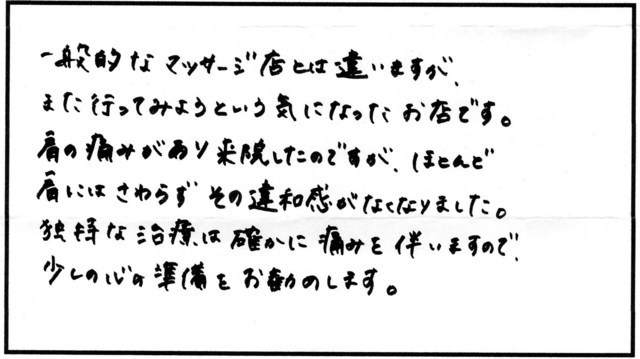 一般的なマッサージ店とは違いますが、
また行ってみようという気になったお店です。
肩の痛みがあり来院したのですが、ほとんど
肩にはさわらずその違和感がなくなりました。
独特な治療は確かに痛みを伴いますので、
少しの心の準備をお勧めします。